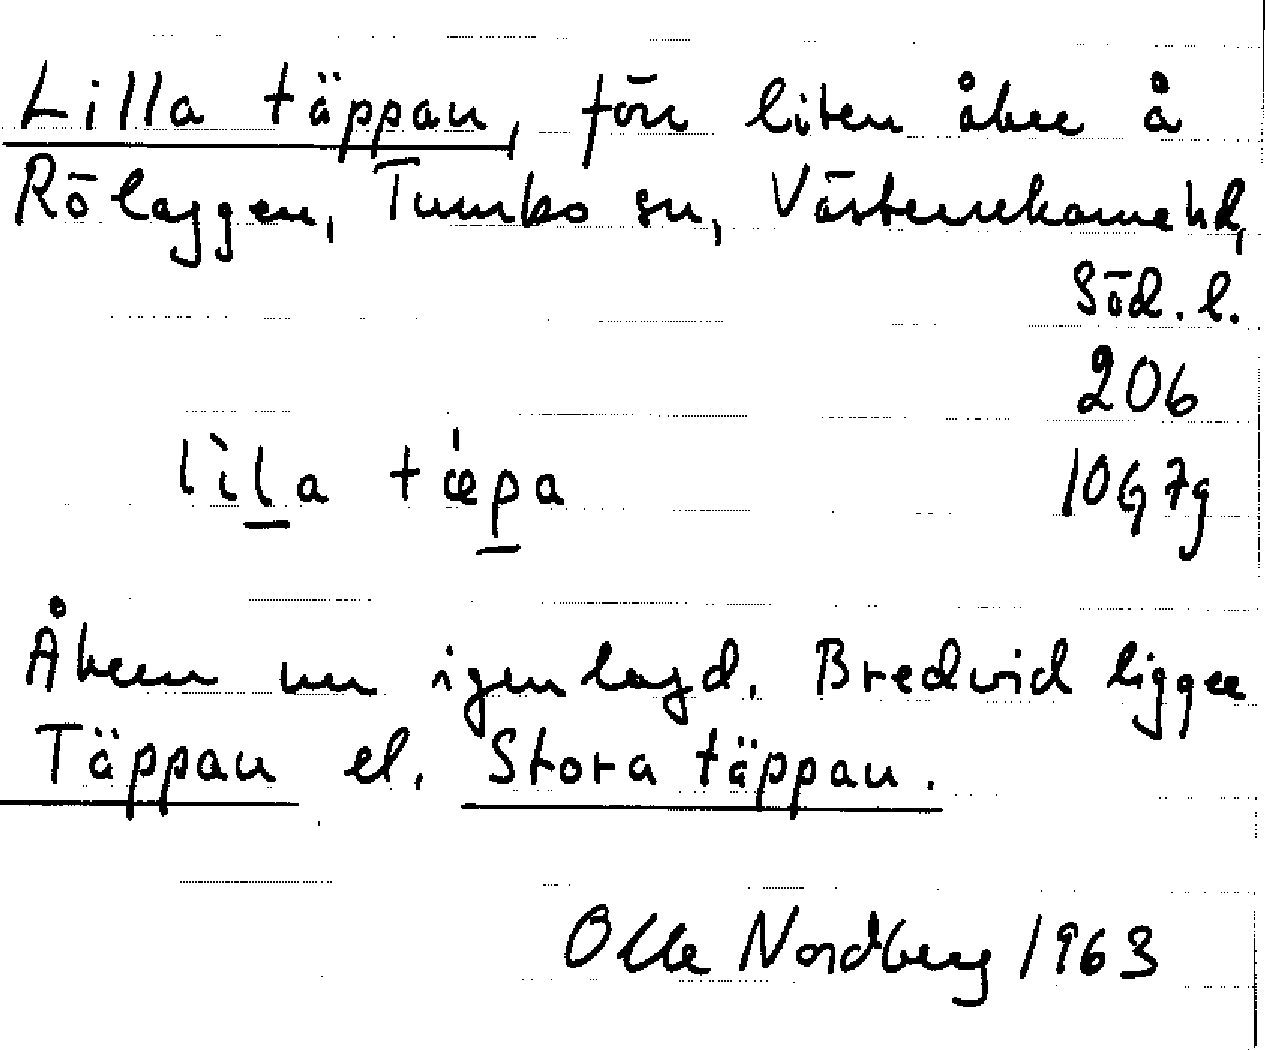 Lilla täppan, förr liten åker å
Rölaggen, Tumbo sn, Västerrekarne hd,
Söd. l.
206
lìla tæ̍pa
10G7g
Åkern nu igenlagd. Bredvid ligger
Täppan el. Stora täppan.
Olle Nordberg 1963